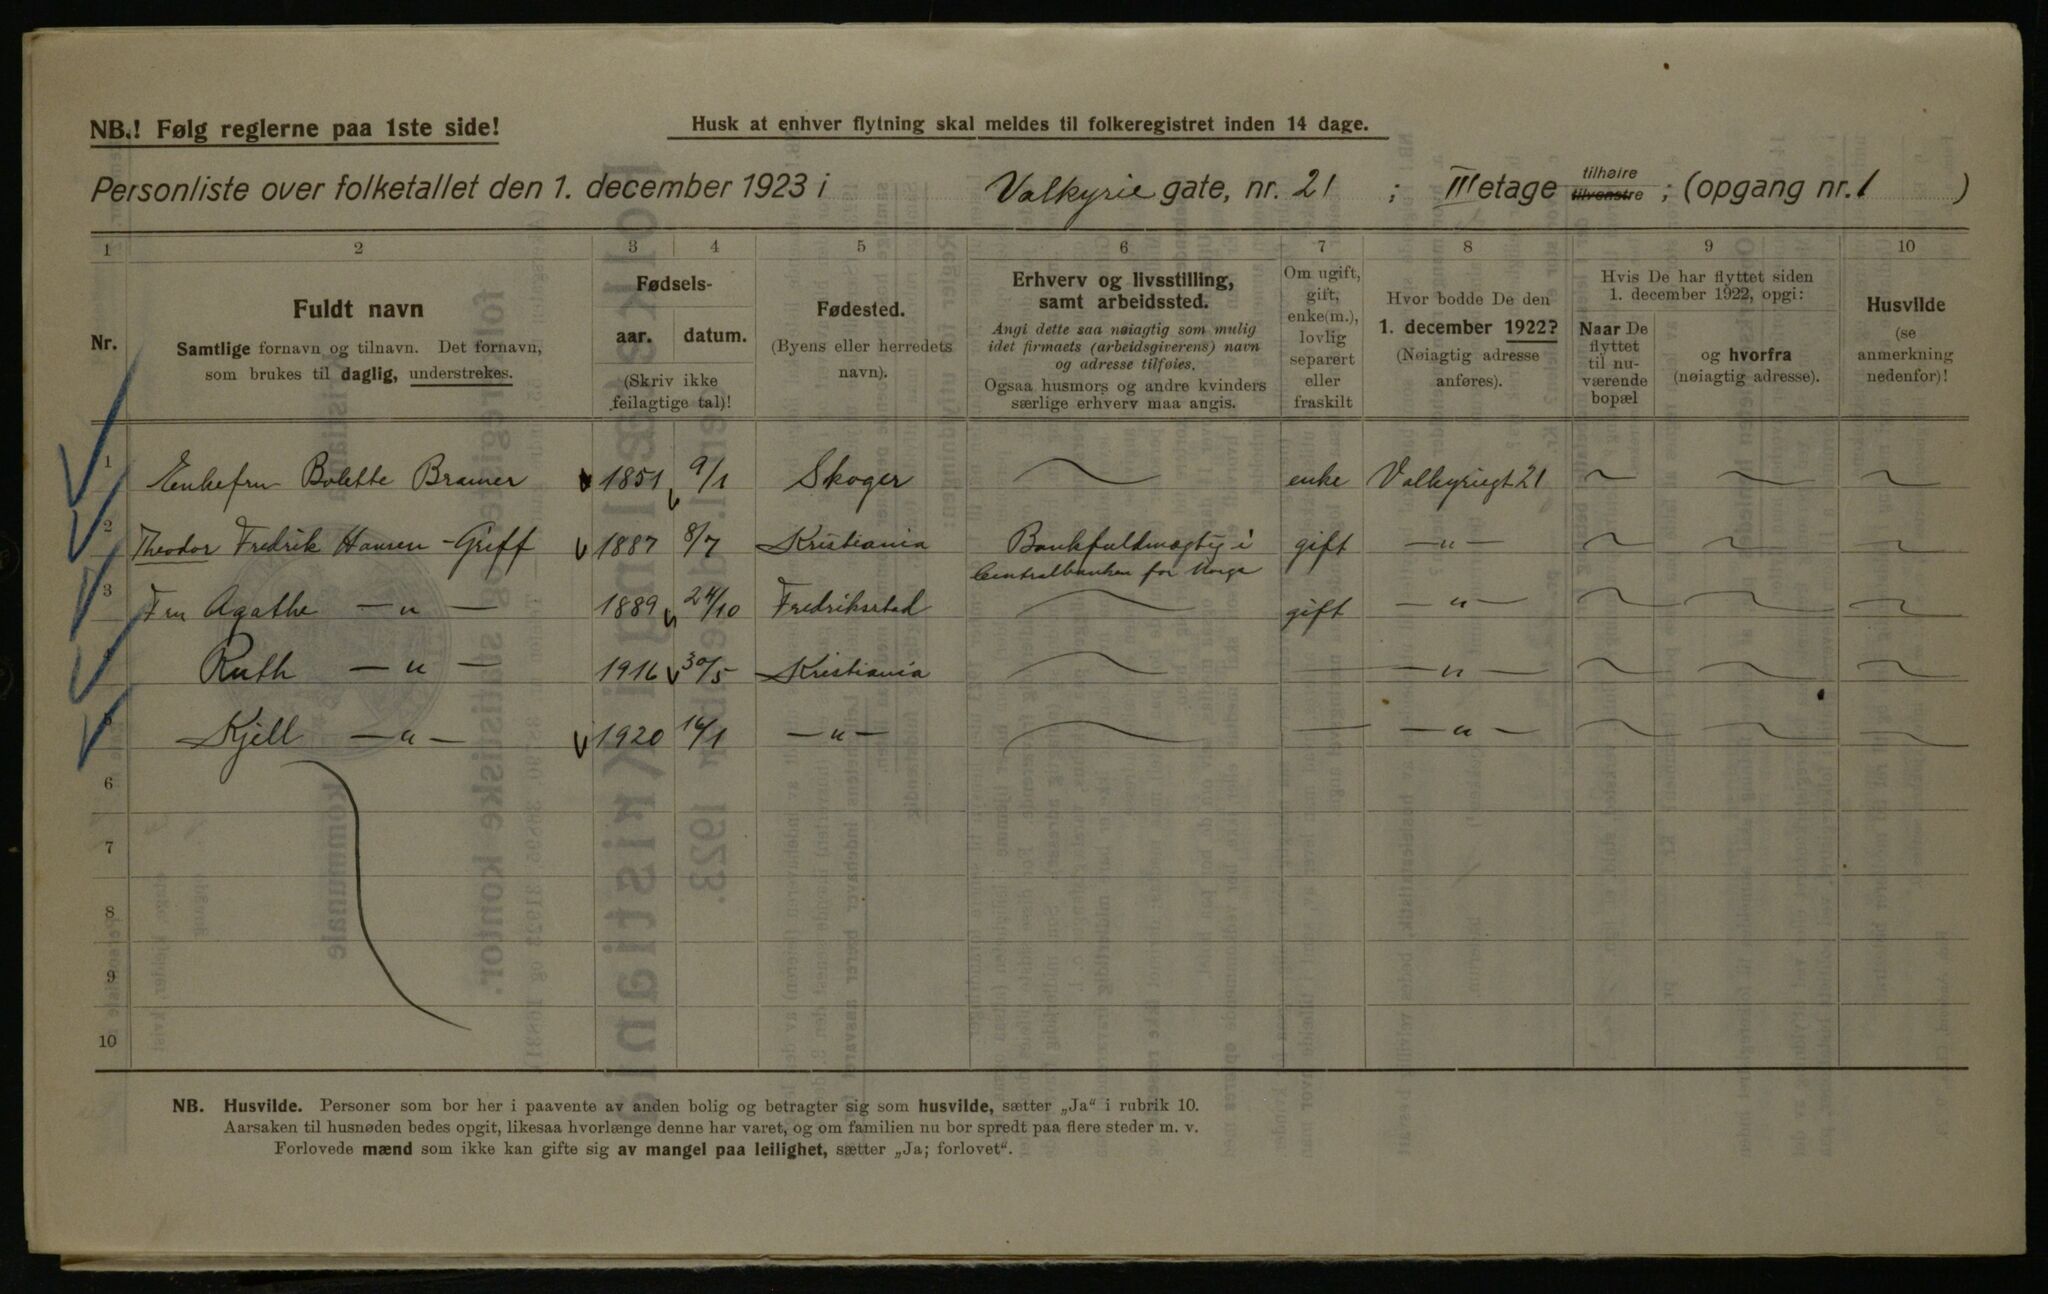 NB.! Følg reglerne paa 1ste side!
Husk at enhver flytning skal meldes til folkeregistret inden 14 dage.
Personliste over folketallet den 1. december 1923 i Valkyrie gate, nr. 21 ; III etage tilhøire tilvenstre ; (opgang nr. 1 )
1 2 3 4 5 6 7 8 9 10
Nr.
Fuldt navn
Samtlige fornavn og tilnavn. Det fornavn,
som brukes til daglig, understrekes.
Fødsels-
aar. datum.
(Skriv ikke
feilagtige tal)!
Fødested.
(Byens eller herredets
navn).
Erhverv og livsstilling,
samt arbeidssted.
Angi dette saa nøiagtig som mulig
idet firmaets (arbeidsgiverens) navn
og adresse tilføies.
Ogsaa husmors og andre kvinders
særlige erhverv maa angis.
Om ugift,
gift,
enke(m.),
lovlig
separert
eller
fraskilt
Hvor bodde De den
1. december 1922?
(Nøiagtig adresse
anføres).
Hvis De har flyttet siden
1. december 1922, opgi:
Naar De
flyttet
til nu-
værende
bopæl
og hvorfra
(nøiagtig adresse).
Husvilde
(se
anmerkning
nedenfor)!
1 Enkefru Bolette Bramer 1851 9/1 Skoger enke Valkyriegt 21
2 Theodor Fredrik Hansen-Greff 1887 8/7 Kristiania Bankfuldmægtig i gift — " —
Centralbanken for Norge
3 Fru Agathe — " — 1889 24/10 Fredriksstad gift — " —
4 Ruth — " — 1916 30/5 Kristiania — — " —
5 Kjell — " — 1920 16/1 — " — — — " —
6
7
8
9
10
NB. Husvilde. Personer som bor her i paavente av anden bolig og betragter sig som husvilde, sætter „Ja“ i rubrik 10.
Aarsaken til husnøden bedes opgit, likesaa hvorlænge denne har varet, og om familien nu bor spredt paa flere steder m. v.
Forlovede mænd som ikke kan gifte sig av mangel paa leilighet, sætter „Ja; forlovet“.